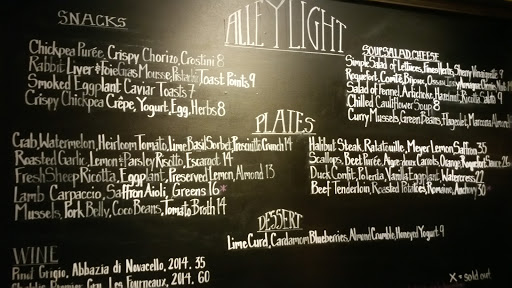 ALLEY LIGHT
SNACKS
Chickpea Purée, Crispy Chorizo, Crostini 8
Rabbit Liver & Foie Gras Mousse, Pistachio Toast Points 9
Smoked Eggplant Caviar Toasts 7
Crispy Chickpea Crêpe, Yogurt, Egg, Herbs 8
SOUP, SALAD, CHEESE
Simple Salad of Lettuces, Fines Herbs, Sherry Vinaigrette 7
Roquefort, Comté, Bijoux,
Salad of Fennel, Artichoke, Hazelnut, Ricotta Salata 9
Chilled Cauliflower Soup 8
Curry Mussels, Green Beans, Flageolet, Marcona Almond
PLATES
Crab, Watermelon, Heirloom Tomato, Lime Basil Sorbet, Prosciutto Crunch 14
Roasted Garlic, Lemon & Parsley Risotto, Escargot 14
Fresh Sheep Ricotta, Eggplant, Preserved Lemon, Almond 13
Lamb Carpaccio, Saffron Aioli, Greens 16 x
Mussels, Pork Belly, Coco Beans, Tomato Broth 14
Halibut Steak, Ratatouille, Meyer Lemon, Saffron 35
Scallops, Beet Purée, Aigre-doux Carrots, Orange, Roquefort Sauce 26
Duck Confit, Polenta, Vanilla Eggplant, Watercress 22
Beef Tenderloin, Roasted Potatoes, Romaine, Anchovy 30 x
DESSERT
Lime Curd, Cardamom Blueberries, Almond Crumble, Honeyed Yogurt 9
WINE
Pinot Grigio, Abbazia di Novacello, 2014. 35
Chablis Premier Cru, Les Fourneaux, 2014. 60
X = sold out